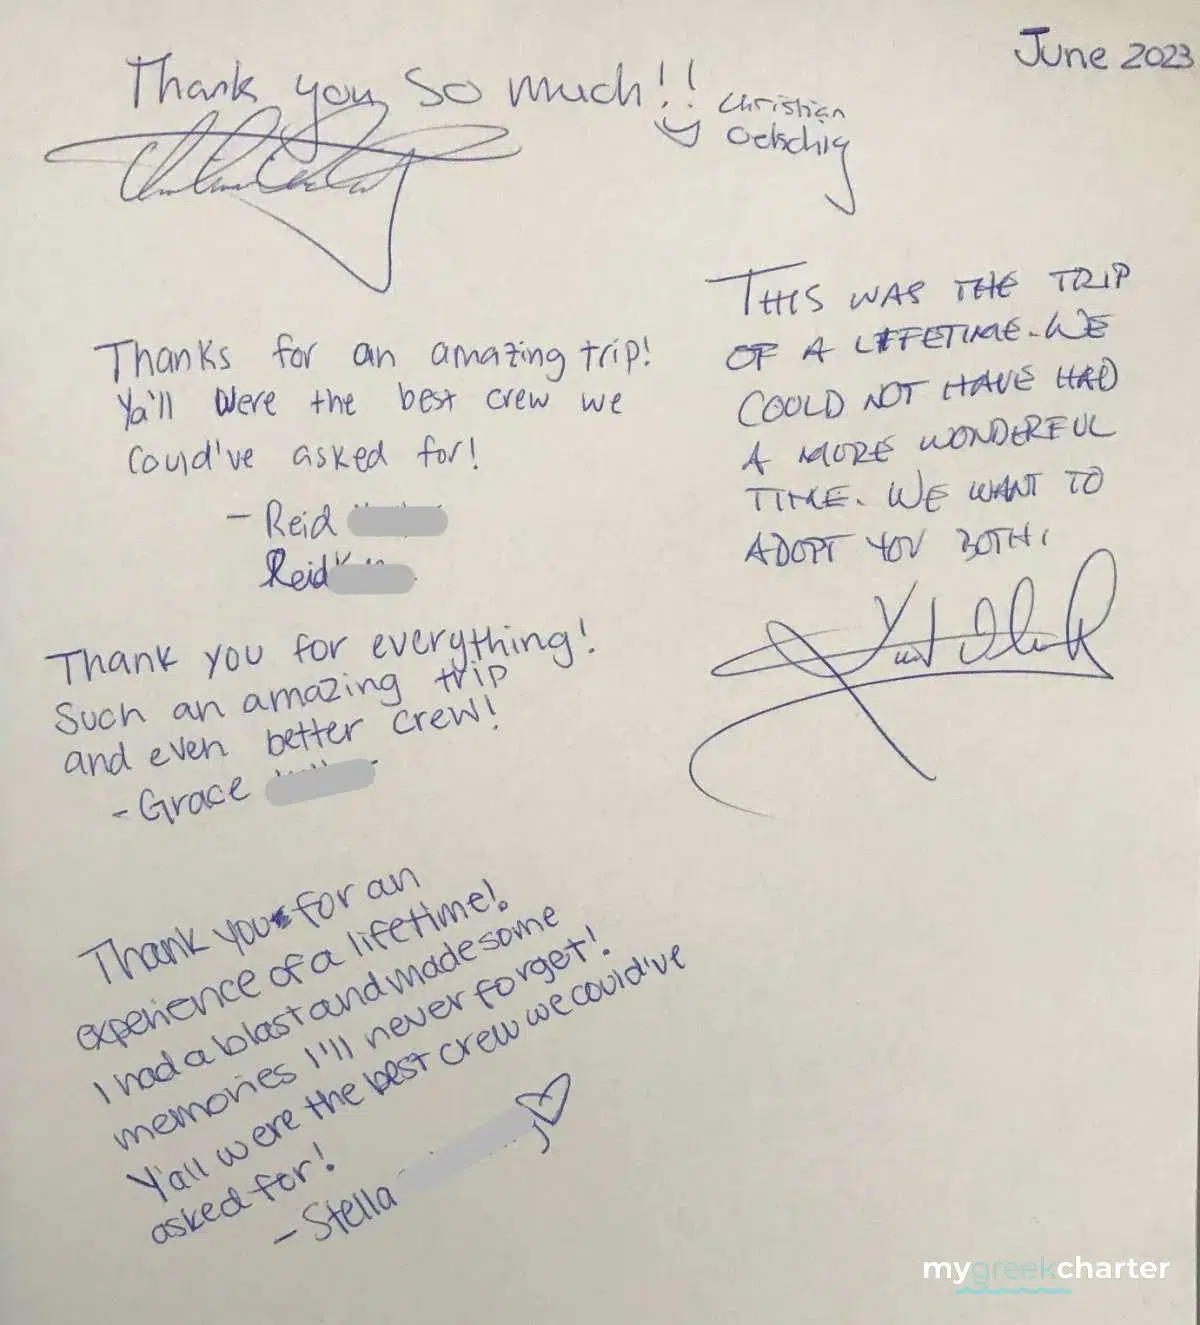 June 2023
Thank you so much!!
Christian
Oelschig
Thanks for an amazing trip!
Ya'll were the best crew we
could've asked for!
- Reid
Reid
THIS WAS THE TRIP
OF A LIFETIME. WE
COULD NOT HAVE HAD
A MORE WONDERFUL
TIME. WE WANT TO
ADOPT YOU BOTH!
Thank you for everything!
Such an amazing trip
and even better crew!
- Grace
Thank you for an
experience of a lifetime!
I had a blast and made some
memories I'll never forget!
Y'all were the best crew we could've
asked for!
- Stella
mygreekcharter